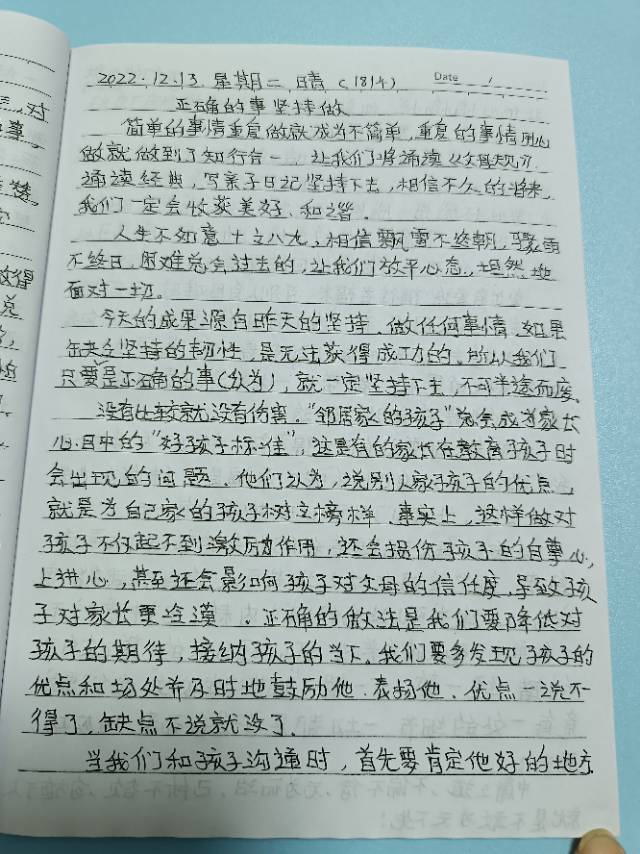 2022.12.13 星期二 晴 (1814) Date /
正确的事坚持做
简单的事情重复做就成为不简单,重复的事情用心
做就做到了知行合一。让我们将诵读《父母规》、
诵读经典,写亲子日记坚持下去,相信不久的将来,
我们一定会收获美好、和谐。
人生不如意十之八九,相信飘雷不终朝,骤雨
不终日,困难总会过去的,让我们放平心态,坦然地
面对一切。
今天的成果源自昨天的坚持,做任何事情,如果
缺乏坚持的韧性,是无法获得成功的。所以我们
只要是正确的事(认为),就一定坚持下去,不可半途而废。
没有比较就没有伤害。“邻居家的孩子”总会成为家长
心目中的“好孩子标准”,这是有的家长在教育孩子时
会出现的问题。他们认为,说别人家孩子的优点,
就是为自己家的孩子树立榜样。事实上,这样做对
孩子不仅起不到激励作用,还会损伤孩子的自尊心,
上进心,甚至还会影响孩子对父母的信任度,导致孩
子对家长更冷漠。正确的做法是我们要降低对
孩子的期待,接纳孩子的当下。我们要多发现孩子的
优点和场处并及时地鼓励他、表扬他、优点一说不
得了,缺点不说就没了。
当我们和孩子沟通时,首先要肯定他好的地方